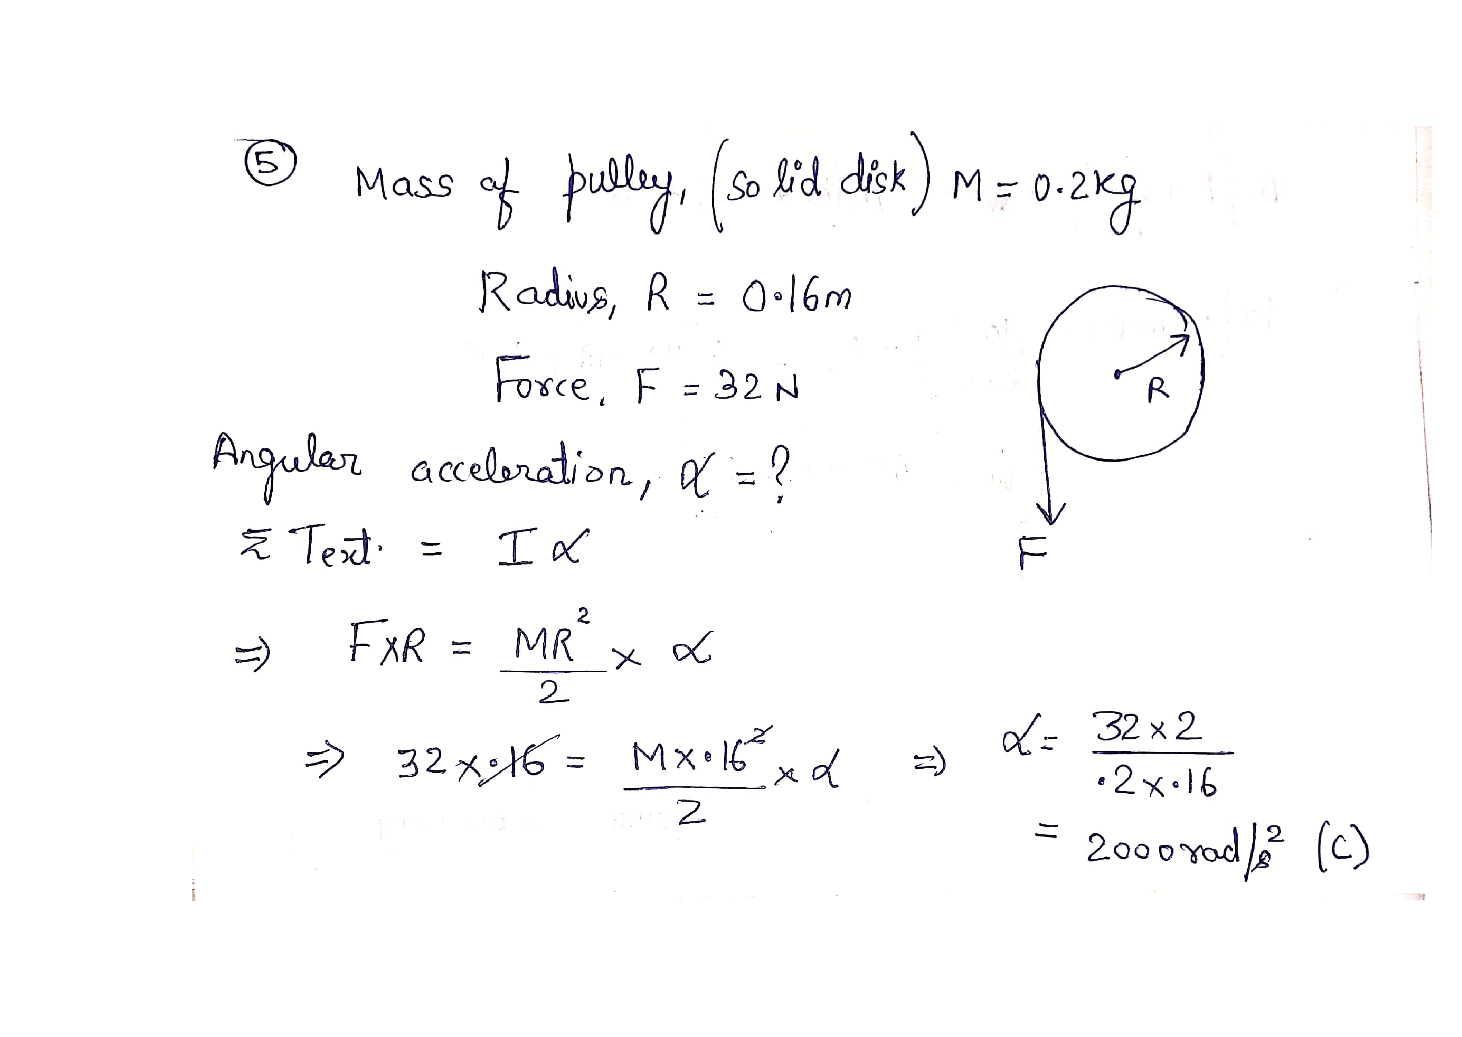 ⑤ Mass of pulley, (solid disk) M = 0.2kg
Radius, R = 0.16m
Force, F = 32 N
R
Angular acceleration, α = ?
F
Σ Text. = I α
⇒ F×R = MR²/2 × α
⇒ 32×.16 = M×.16²/2 × α ⇒ α = 32×2/.2×.16
= 2000 rad/s² (C)